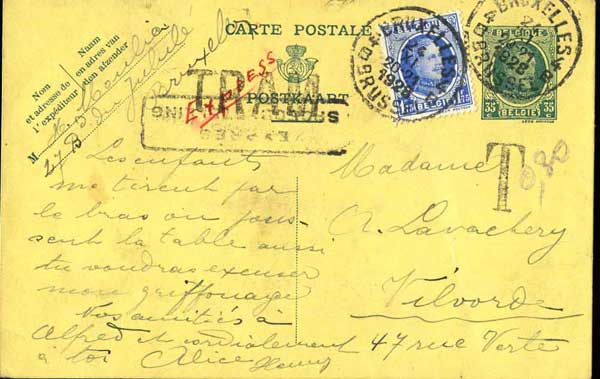 CARTE POSTALE
POSTKAART
Nom
et adresse de
l'expéditeur
Naam
en adres van
den afzender
M
Bruxelles
EXPRESS
TRAM
BRUXELLES
BRUSSEL
BRUXELLES
BRUSSEL
BELGIE
35
35
BELGIE
T
0,80
Les enfants
me tirent par
le bras ou pous-
sent la table aussi
tu voudras excuser
mon griffonage
Nos amitiés à
Alfred et cordialement
à toi Alice
Henry
Madame
A. Lavachery
Vilvorde
47 rue Verte